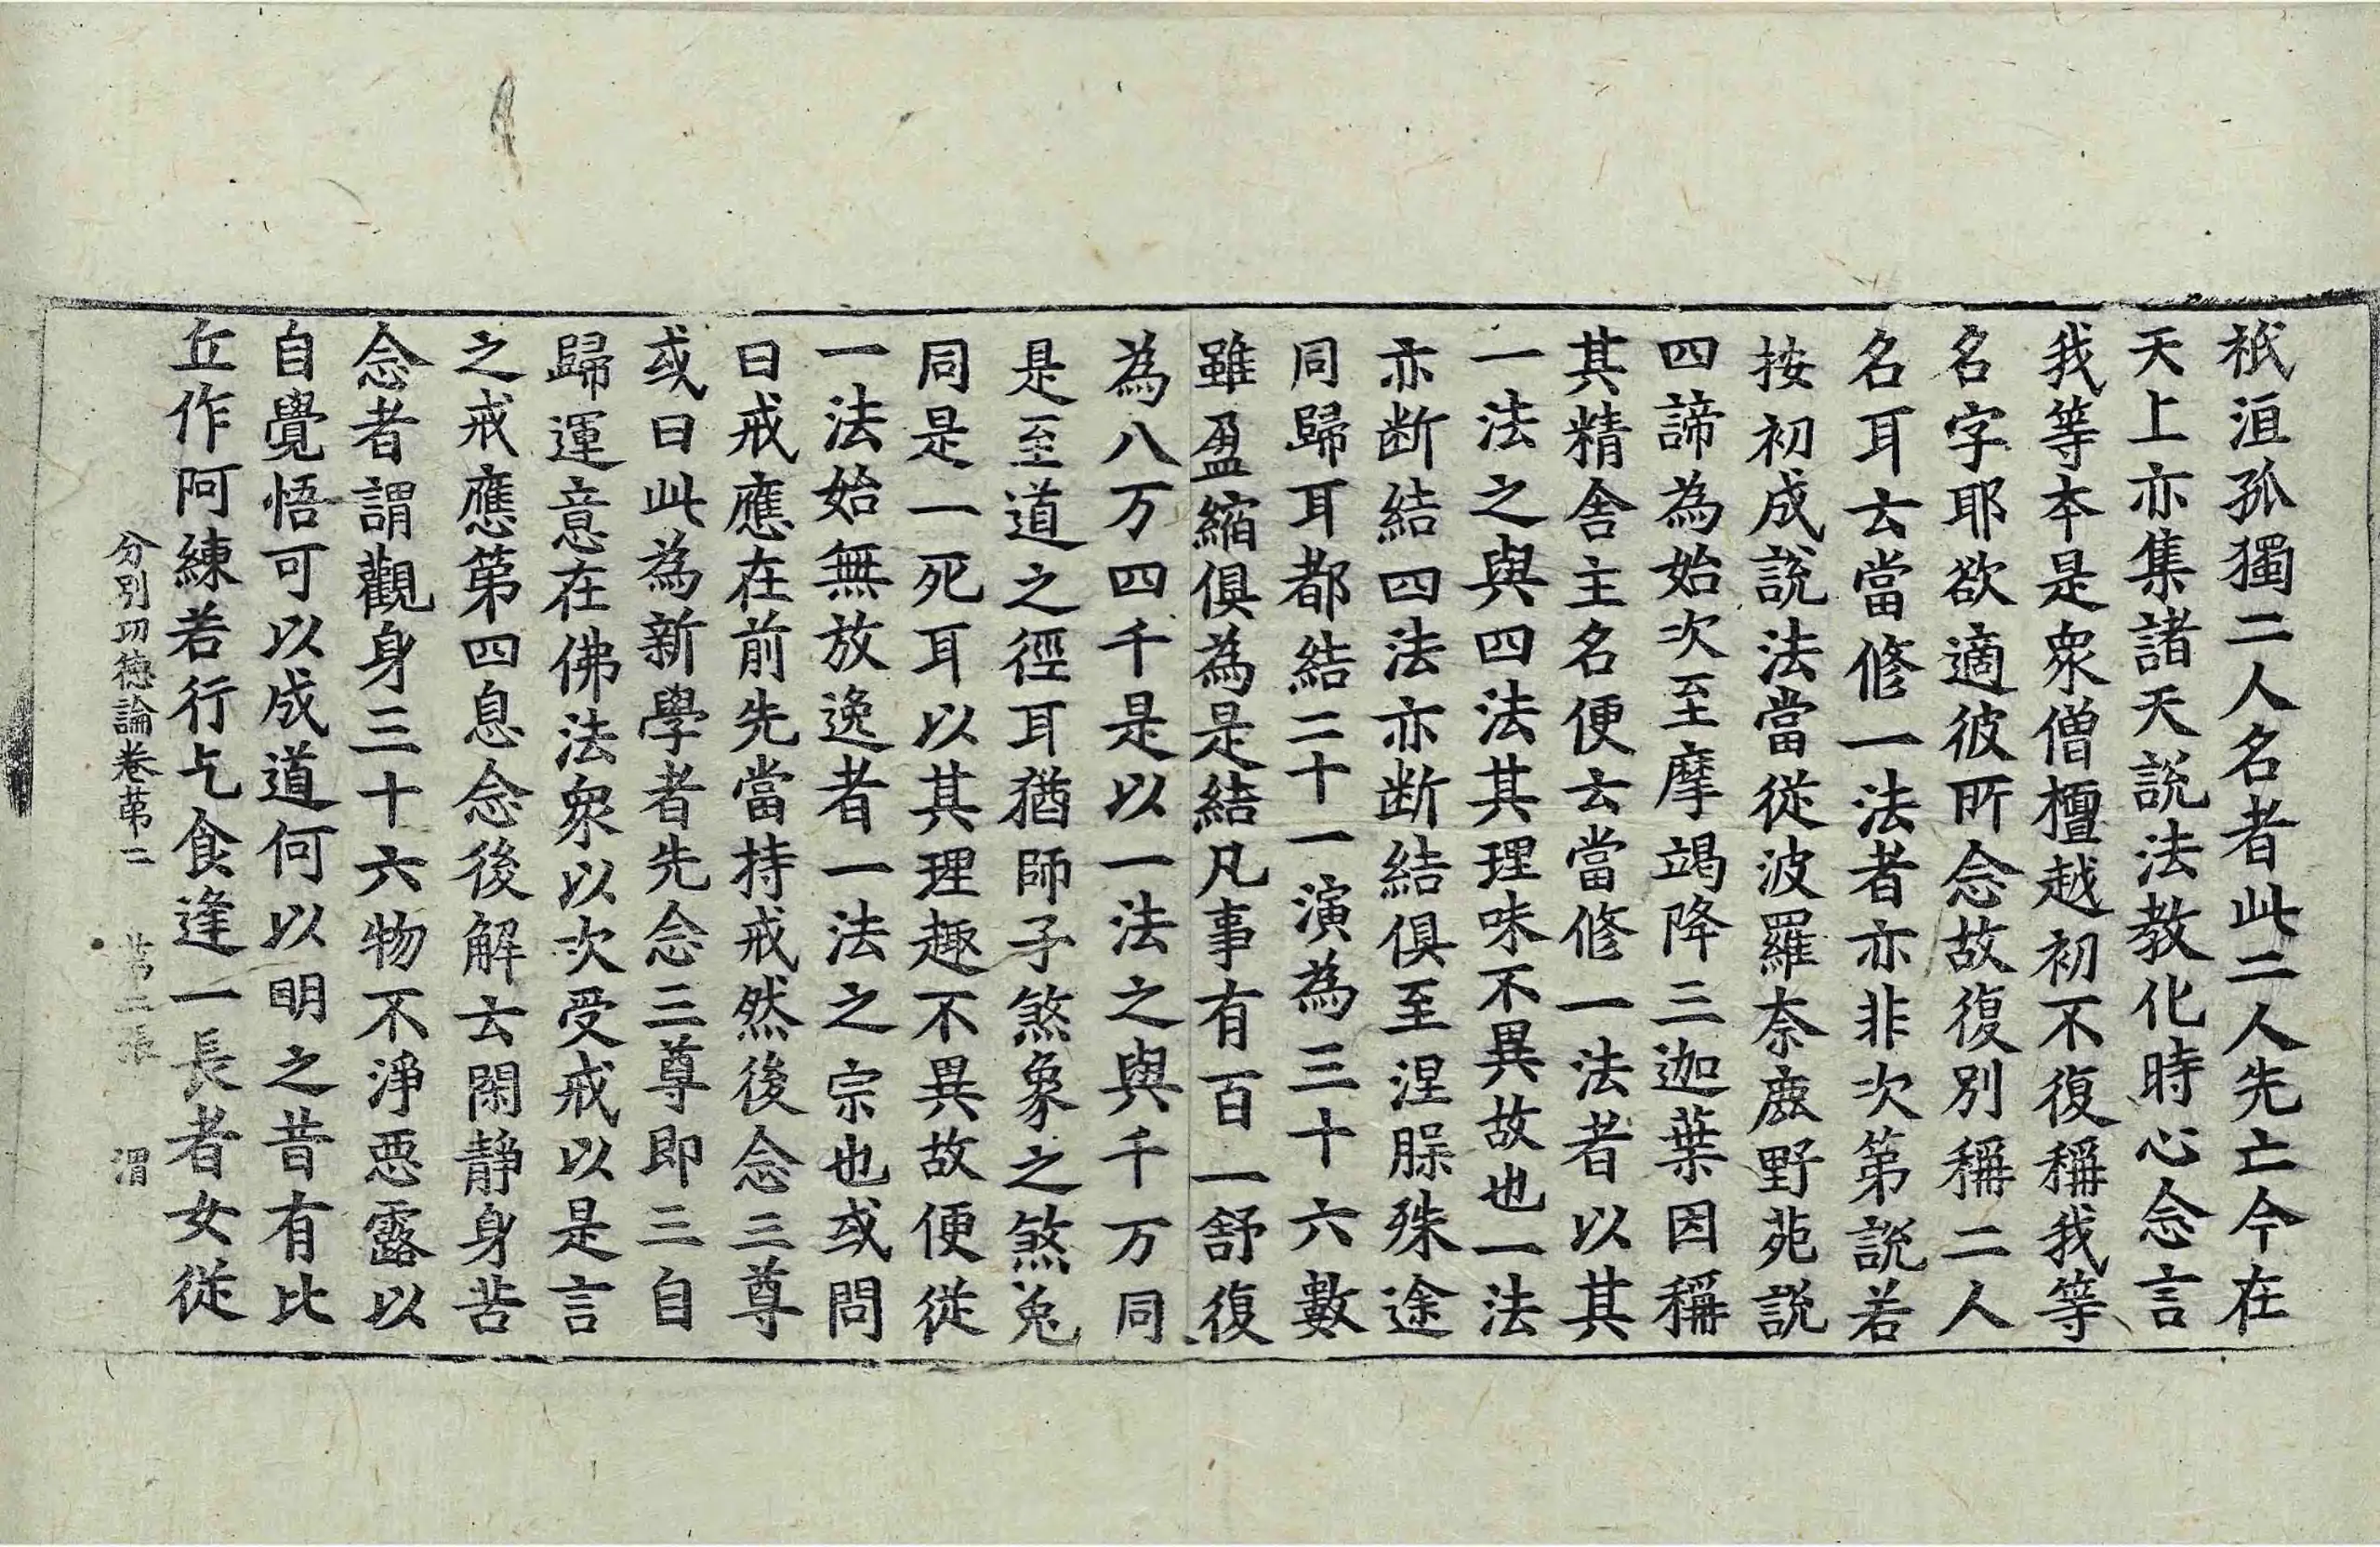 祇洹孤獨二人名者此二人先亡今在
天上亦集諸天說法教化時心念言
我等本是衆僧檀越初不復稱我等
名字耶欲適彼所念故復別稱二人
名耳云當修一法者亦非次第說若
按初成說法當從波羅奈鹿野苑說
四諦為始次至摩竭降三迦葉因稱
其精舍主名便云當修一法者以其
一法之與四法其理味不異故也一法
亦断結四法亦断結俱至涅槃殊途
同歸耳都結二十一演為三十六數
雖盈縮俱為是結凡事有百一舒復
為八万四千是以一法之與千万同
是至道之徑耳猶師子煞象之煞兔
同是一死耳以其理趣不異故便從
一法始無放逸者一法之宗也或問
曰戒應在前先當持戒然後念三尊
或曰此為新學者先念三尊即三自
歸運意在佛法衆以次受戒以是言
之戒應第四息念後解云閑静身苦
念者謂觀身三十六物不淨惡露以
自覺悟可以成道何以明之昔有比
丘作阿練若行乞食逢一長者女從
分別功德論卷第二 第二張 渭